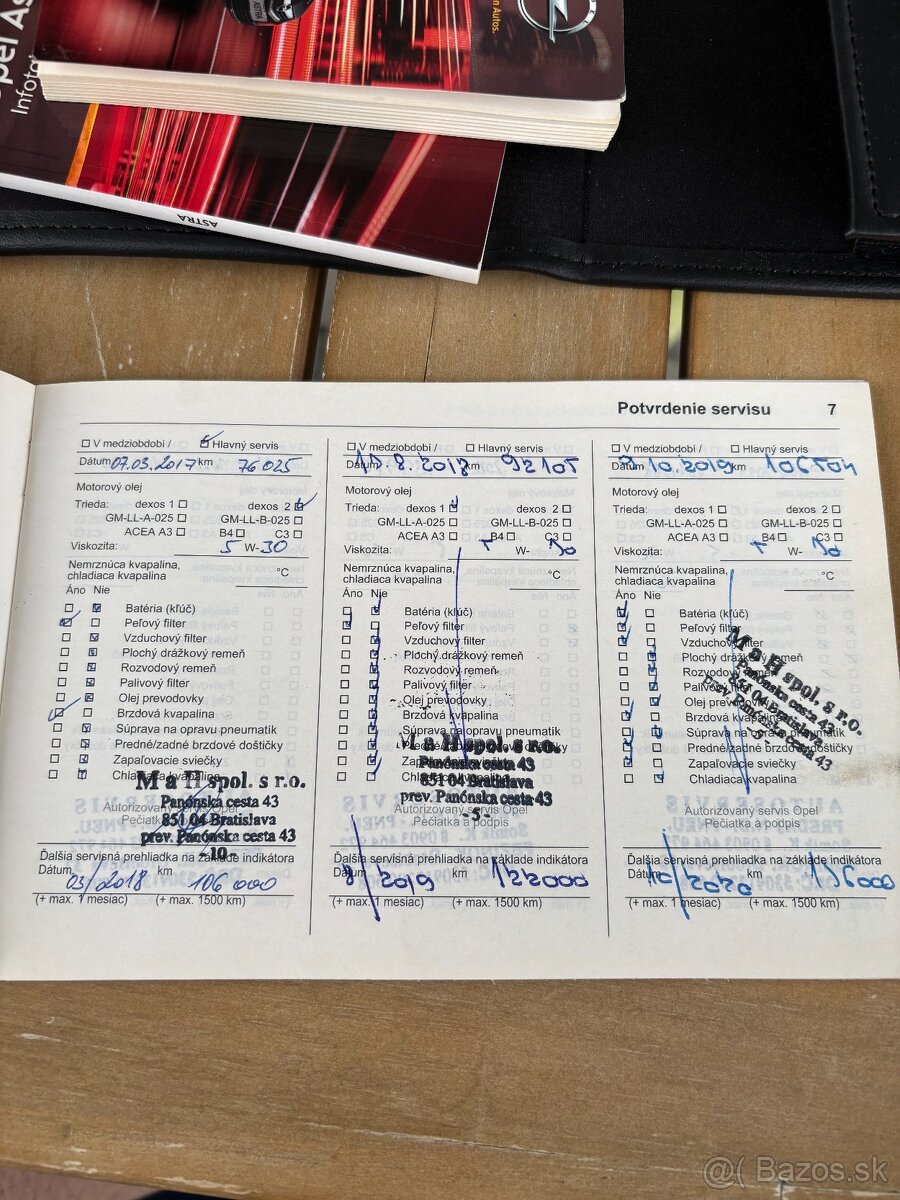 n Autos.
ASTRA
pel As
Infota
ASTRA
Potvrdenie servisu 7
V medziobdobí / Hlavný servis
Dátum 07.03.2017 km 76 025
Motorový olej
Trieda: dexos 1 dexos 2
GM-LL-A-025 GM-LL-B-025
ACEA A3 B4 C3
Viskozita: 5 W-30
Nemrznúca kvapalina,
chladiaca kvapalina °C
Áno Nie
Batéria (kľúč)
Peľový filter
Vzduchový filter
Plochý drážkový remeň
Rozvodový remeň
Palivový filter
Olej prevodovky
Brzdová kvapalina
Súprava na opravu pneumatík
Predné/zadné brzdové doštičky
Zapaľovacie sviečky
Chladiaca kvapalina
M a H spol. s r.o.
Panónska cesta 43
851 04 Bratislava
prev. Panónska cesta 43
-10-
Autorizovaný servis Opel
Pečiatka a podpis
Ďalšia servisná prehliadka na základe indikátora
Dátum 03/2018 km 106 000
(+ max. 1 mesiac) (+ max. 1500 km)
V medziobdobí / Hlavný servis
Dátum 8.2018 km 92105
Motorový olej
Trieda: dexos 1 dexos 2
GM-LL-A-025 GM-LL-B-025
ACEA A3 B4 C3
Viskozita: W-
Nemrznúca kvapalina,
chladiaca kvapalina °C
Áno Nie
Batéria (kľúč)
Peľový filter
Vzduchový filter
Plochý drážkový remeň
Rozvodový remeň
Palivový filter
Olej prevodovky
Brzdová kvapalina
Súprava na opravu pneumatík
Predné/zadné brzdové doštičky
Zapaľovacie sviečky
Chladiaca kvapalina
M a H spol. s r.o.
Panónska cesta 43
851 04 Bratislava
prev. Panónska cesta 43
-5-
Autorizovaný servis Opel
Pečiatka a podpis
Ďalšia servisná prehliadka na základe indikátora
Dátum 8/2019 km 122000
(+ max. 1 mesiac) (+ max. 1500 km)
V medziobdobí / Hlavný servis
Dátum 10.2019 km
Motorový olej
Trieda: dexos 1 dexos 2
GM-LL-A-025 GM-LL-B-025
ACEA A3 B4 C3
Viskozita: W-
Nemrznúca kvapalina,
chladiaca kvapalina °C
Áno Nie
Batéria (kľúč)
Peľový filter
Vzduchový filter
Plochý drážkový remeň
Rozvodový remeň
Palivový filter
Olej prevodovky
Brzdová kvapalina
Súprava na opravu pneumatík
Predné/zadné brzdové doštičky
Zapaľovacie sviečky
Chladiaca kvapalina
M a H spol. s r.o.
Panónska cesta 43
851 04 Bratislava
prev. Panónska cesta 43
Autorizovaný servis Opel
Pečiatka a podpis
Ďalšia servisná prehliadka na základe indikátora
Dátum 10/2020 km 136000
(+ max. 1 mesiac) (+ max. 1500 km)
Bazos.sk